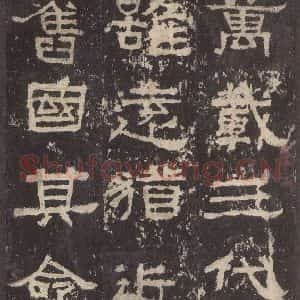 萬載三代
雖遠猶近
舊國其命
Shufawang.CN